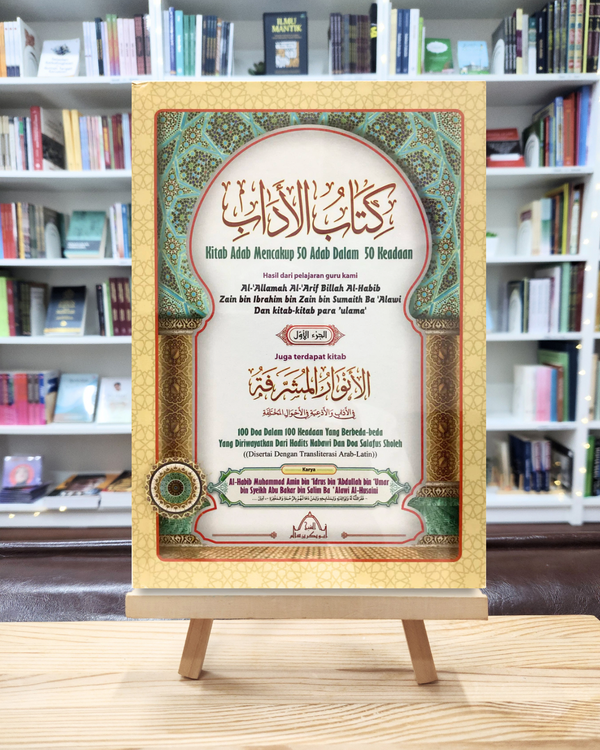 ILMU
MANTIK
كِتَابُ الْأَدَابِ
Kitab Adab Mencakup 50 Adab Dalam 50 Keadaan
Hasil dari pelajaran guru kami
Al-'Allamah Al-'Arif Billah Al-Habib
Zain bin Ibrahim bin Zain bin Sumaith Ba 'Alawi
Dan kitab-kitab para 'ulama'
الجزء الأول
Juga terdapat kitab
الأَنْوَارُ المُشَرَّفَةُ
فِي الْآدَابِ وَالْأَدْعِيَةِ فِي الْأَحْوَالِ الْمُخْتَلِفَةِ
100 Doa Dalam 100 Keadaan Yang Berbeda-beda
Yang Diriwayatkan Dari Hadits Nabawi Dan Doa Salafus Sholeh
((Disertai Dengan Transliterasi Arab-Latin))
Karya
Al-Habib Muhammad Amin bin 'Idrus bin 'Abdullah bin 'Umar
bin Syeikh Abu Bakar bin Salim Ba 'Alawi Al-Husaini